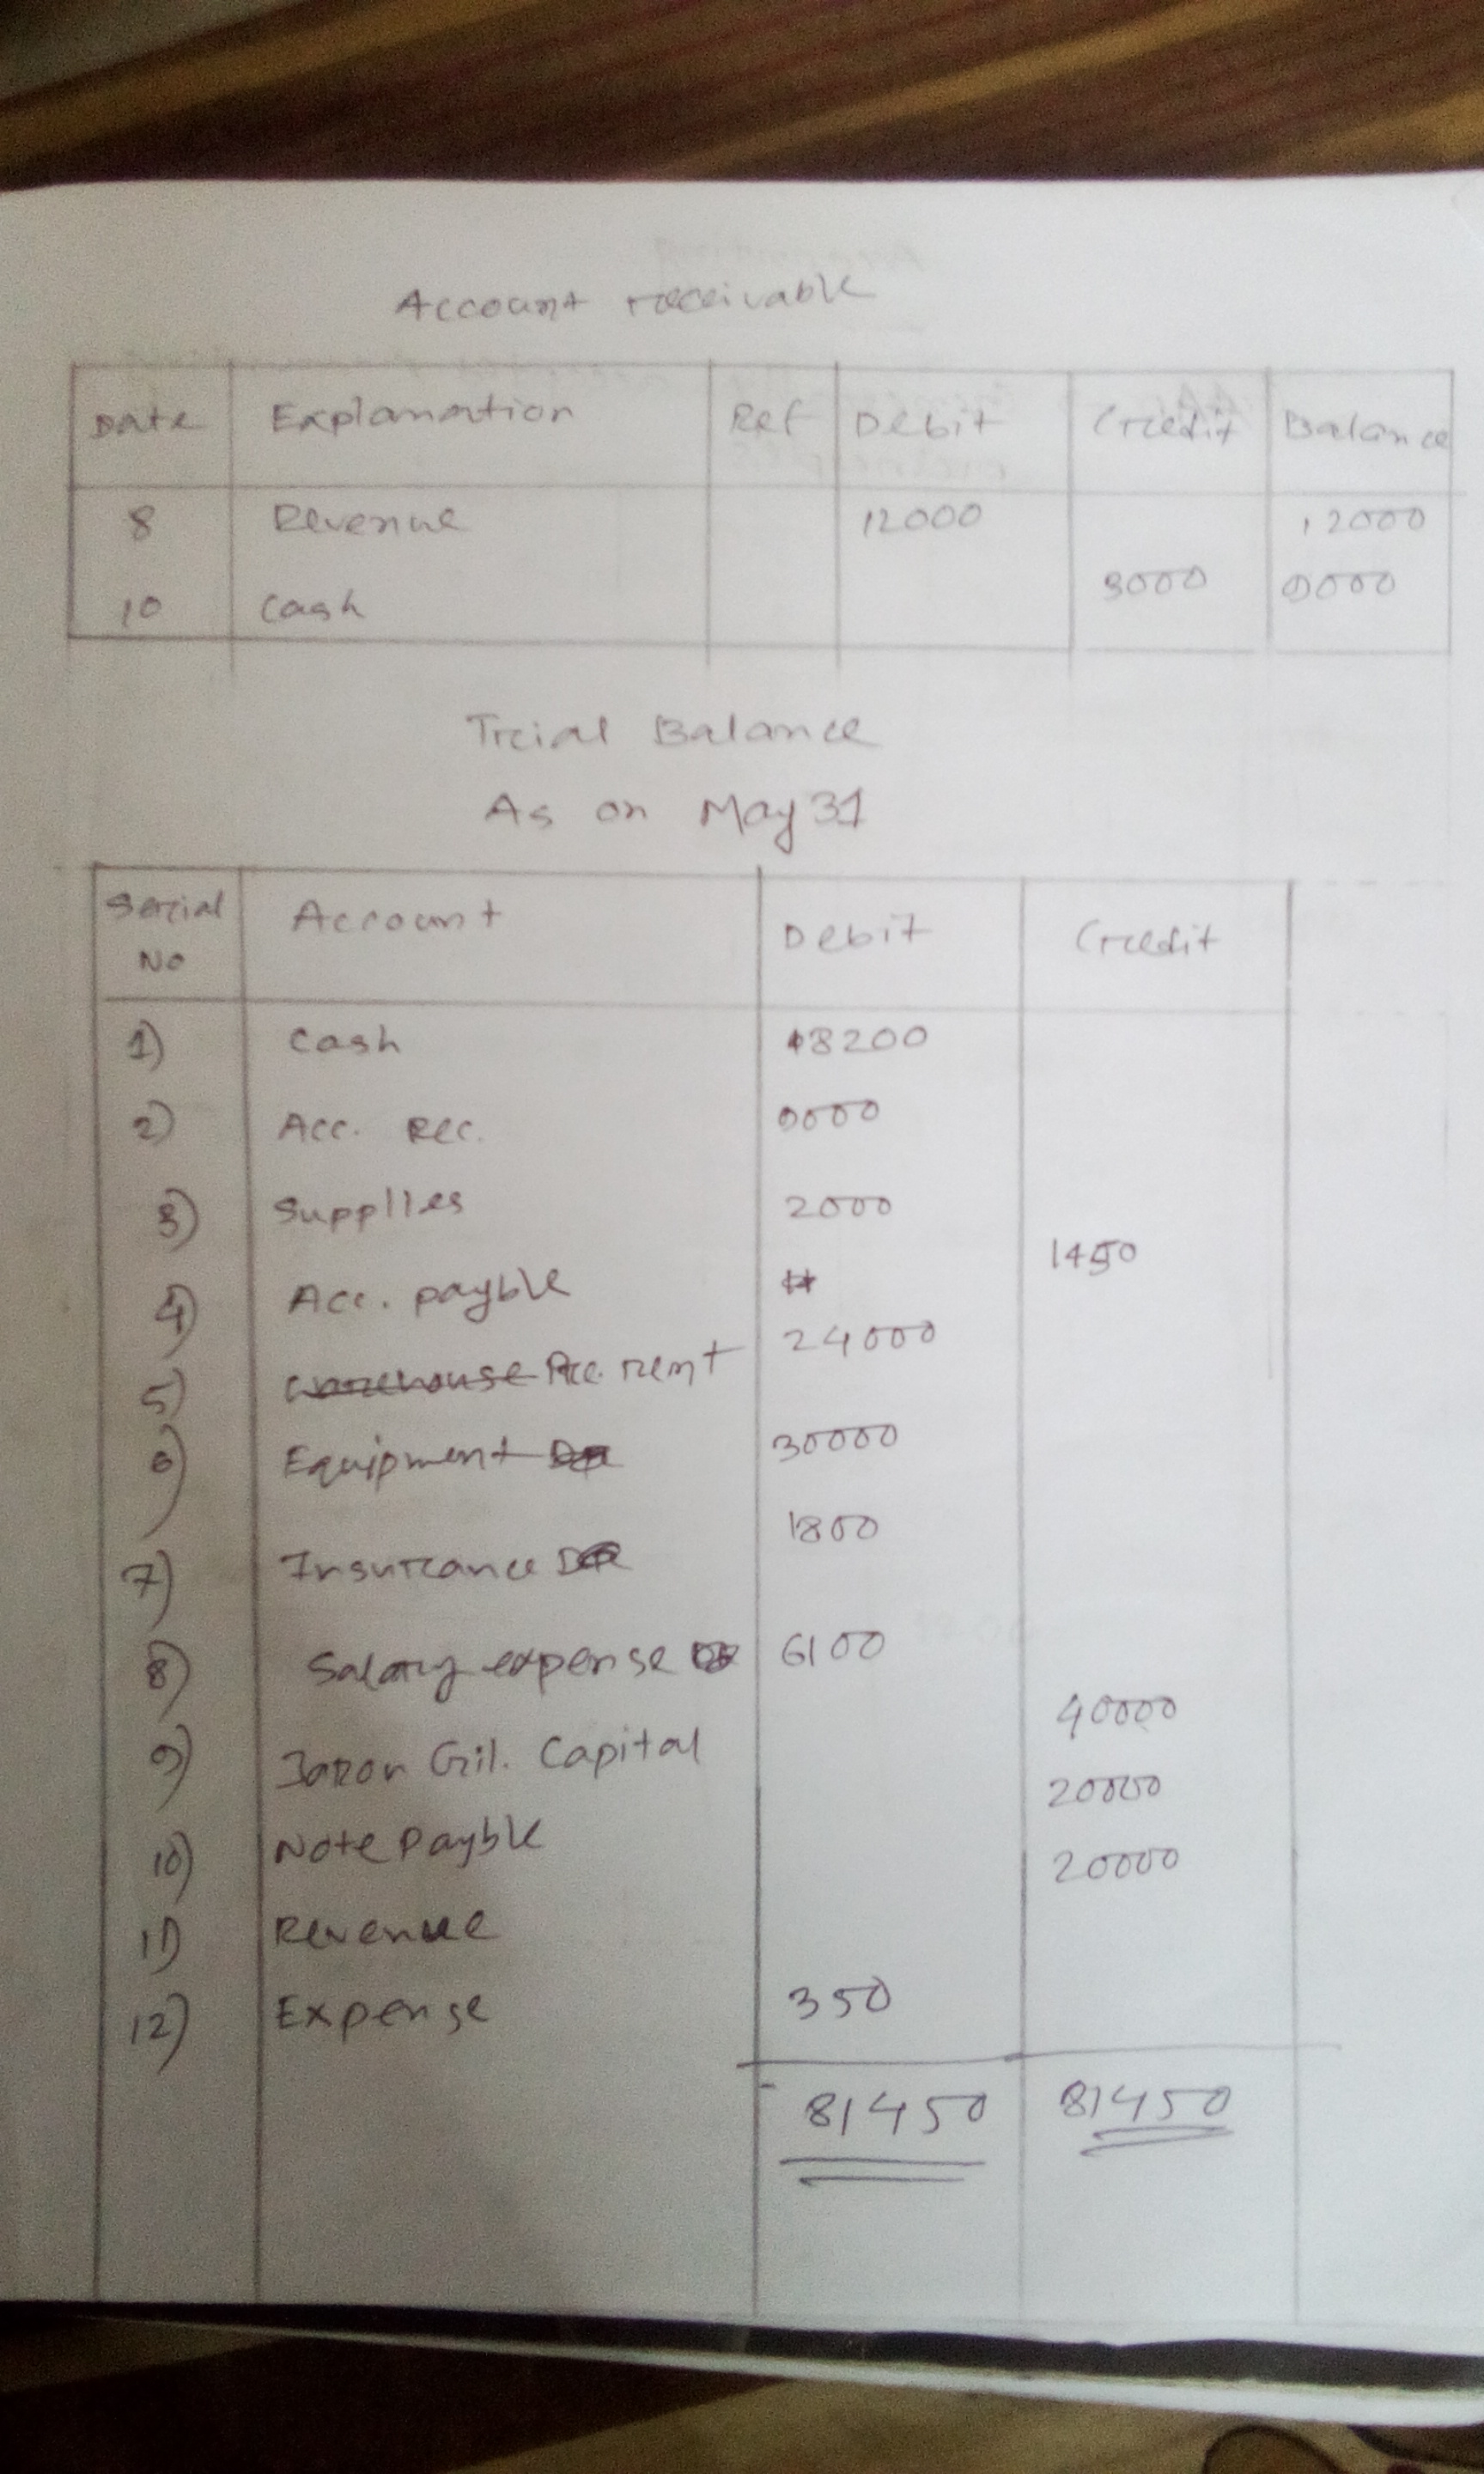 Account receivable
Date Explanation Ref Debit Credit Balance
8 Revenue 12000 12000
10 Cash 3000 9000
Trial Balance
As on May 31
Serial No Account Debit Credit
1) Cash 8200
2) Acc. Rec. 9000
3) Supplies 2000
4) Acc. payble 1450
5) Pre. rent 24000
6) Equipment 30000
7) Insurance 1800
8) Salary expense 6100
9) Gil. Capital 40000
10) Note Payble 20000
11) Revenue 20000
12) Expense 350
81450 81450